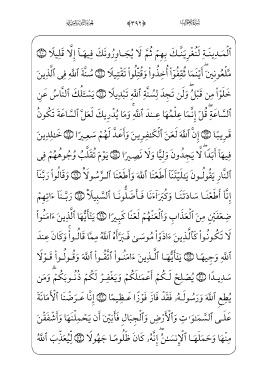 ٱلْمَدِينَةِ لَنُغْرِيَنَّكَ بِهِمْ ثُمَّ لَا يُجَاوِرُونَكَ فِيهَآ إِلَّا قَلِيلًا
مَّلْعُونِينَ أَيْنَمَا ثُقِفُوٓا۟ أُخِذُوا۟ وَقُتِّلُوا۟ تَقْتِيلًا سُنَّةَ ٱللَّهِ فِى ٱلَّذِينَ
خَلَوْا۟ مِن قَبْلُ وَلَن تَجِدَ لِسُنَّةِ ٱللَّهِ تَبْدِيلًا يَسْـَٔلُكَ ٱلنَّاسُ عَنِ
ٱلسَّاعَةِ قُلْ إِنَّمَا عِلْمُهَا عِندَ ٱللَّهِ وَمَا يُدْرِيكَ لَعَلَّ ٱلسَّاعَةَ تَكُونُ
قَرِيبًا إِنَّ ٱللَّهَ لَعَنَ ٱلْكَٰفِرِينَ وَأَعَدَّ لَهُمْ سَعِيرًا خَٰلِدِينَ
فِيهَآ أَبَدًا لَّا يَجِدُونَ وَلِيًّا وَلَا نَصِيرًا يَوْمَ تُقَلَّبُ وُجُوهُهُمْ فِى
ٱلنَّارِ يَقُولُونَ يَٰلَيْتَنَآ أَطَعْنَا ٱللَّهَ وَأَطَعْنَا ٱلرَّسُولَا۠ وَقَالُوا۟ رَبَّنَآ
إِنَّآ أَطَعْنَا سَادَتَنَا وَكُبَرَآءَنَا فَأَضَلُّونَا ٱلسَّبِيلَا۠ رَبَّنَآ ءَاتِهِمْ
ضِعْفَيْنِ مِنَ ٱلْعَذَابِ وَٱلْعَنْهُمْ لَعْنًا كَبِيرًا يَٰٓأَيُّهَا ٱلَّذِينَ ءَامَنُوا۟
لَا تَكُونُوا۟ كَٱلَّذِينَ ءَاذَوْا۟ مُوسَىٰ فَبَرَّأَهُ ٱللَّهُ مِمَّا قَالُوا۟ وَكَانَ عِندَ
ٱللَّهِ وَجِيهًا يَٰٓأَيُّهَا ٱلَّذِينَ ءَامَنُوا۟ ٱتَّقُوا۟ ٱللَّهَ وَقُولُوا۟ قَوْلًا
سَدِيدًا يُصْلِحْ لَكُمْ أَعْمَٰلَكُمْ وَيَغْفِرْ لَكُمْ ذُنُوبَكُمْ وَمَن
يُطِعِ ٱللَّهَ وَرَسُولَهُۥ فَقَدْ فَازَ فَوْزًا عَظِيمًا إِنَّا عَرَضْنَا ٱلْأَمَانَةَ
عَلَى ٱلسَّمَٰوَٰتِ وَٱلْأَرْضِ وَٱلْجِبَالِ فَأَبَيْنَ أَن يَحْمِلْنَهَا وَأَشْفَقْنَ
مِنْهَا وَحَمَلَهَا ٱلْإِنسَٰنُ إِنَّهُۥ كَانَ ظَلُومًا جَهُولًا لِّيُعَذِّبَ ٱللَّهُ